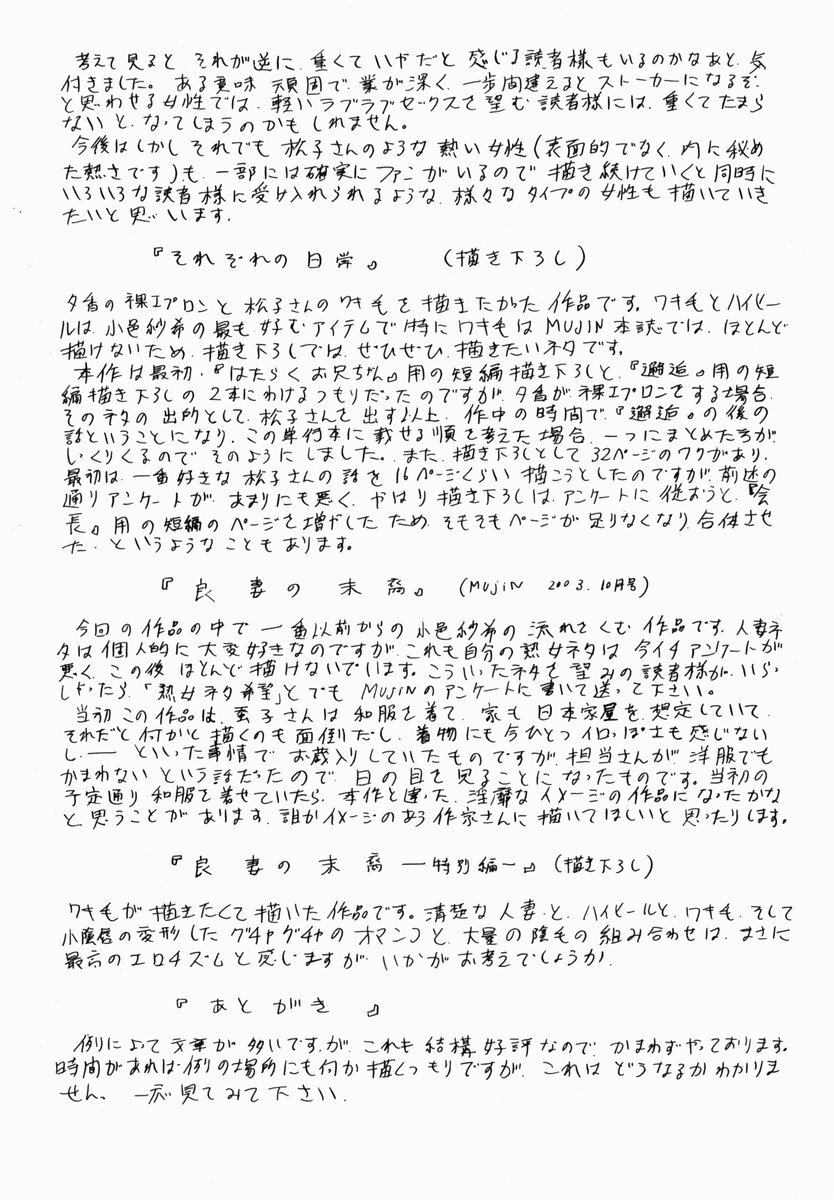 考えて見ると それが逆に、重くていやだと 感じる読者様もいるのかなあと、気
付きました。ある意味 頑固で、業が深く、一歩間違えるとストーカーになるぞ
と思わせる女性では、軽いラブラブセックスを望む読者様には、重くてたまら
ないと、なってしまうのかもしれません。
今後はしかし それでも 松子さんのような 熱い女性(表面的でなく、内に秘め
た熱さです)も、一部には確実に ファンがいるので 描き続けていくと同時に
いろいろな読者様に受け入れられるような、様々なタイプの女性も 描いていき
たいと思います。
『それぞれの日常』 (描き下ろし)
夕香の裸エプロンと 松子さんのワキ毛を描きたかった作品です。ワキ毛とハイヒー
ルは、小邑紗希の最も好むアイテムで特にワキ毛はMUJIN本誌では、ほとんど
描けないため、描き下ろしでは、ぜひぜひ、描きたいネタです。
本作は最初、『はたらくお兄ちゃん』用の短編描き下ろしと、『邂逅』用の短
編描き下ろしの 2本にわけるつもりだったのですが、夕香が、裸エプロンをする場合、
そのネタの出所として、松子さんを出す以上、作中の時間で、『邂逅』の後の
話ということになり、この単行本に載せる順を考えた場合、一つにまとめた方が、
しっくりくるので そのようにしました。また、描き下ろしとして 32ページのワクがあり、
最初は、一番好きな 松子さんの話を 16ページくらい 描こうとしたのですが、前述の
通りアンケートが、あまりにも悪く、やはり描き下ろしは、アンケートに従おうと、『会
長』用の短編のページを増やしたため、そもそもページが足りなくなり、合体させ
た、というようなこともあります。
『良妻の末裔』 (MUJIN 2003. 10月号)
今回の作品の中で一番以前からの小邑紗希の流れをくむ作品です。人妻ネ
タは個人的に大変好きなのですが、これも自分の熟女ネタは 今イチアンケートが
悪く、この後 ほとんど描けないでいます。こういったネタを望みの読者様が、いら
しゃったら、「熟女ネタ希望」とでも MUJINのアンケートに書いて送って下さい。
当初この作品は、 子さんは 和服を着て、家も日本家屋を想定していて、
それだと何かと描くのも面倒だし、着物にも今ひとつイロっぽさも感じない
し、── といった事情で お蔵入りしていたものですが、担当さんが、洋服でも
かまわないという話だったので 日の目を見ることになったものです。当初の
予定通り 和服を着せていたら、本作と違った、淫靡なイメージの作品になったかな
と思うことがあります、誰かイメージのあう作家さんに描いてほしいと思ったりします。
『良妻の末裔 ―特別編―』(描き下ろし)
ワキ毛が描きたくて描いた作品です。清楚な人妻と、ハイヒールと、ワキ毛、そして
小陰唇の変形したグチャグチャのオマンコと、大量の陰毛の組み合わせは、まさに
最高のエロチズムと感じますが、いかがお考えでしょうか。
『あとがき 』
例によって文章が多いですが、これも結構好評なので、かまわずやっております。
時間があれば例の場所にも何か描くつもりですが、これは どうなるかわかりま
せん。一応見てみて下さい。